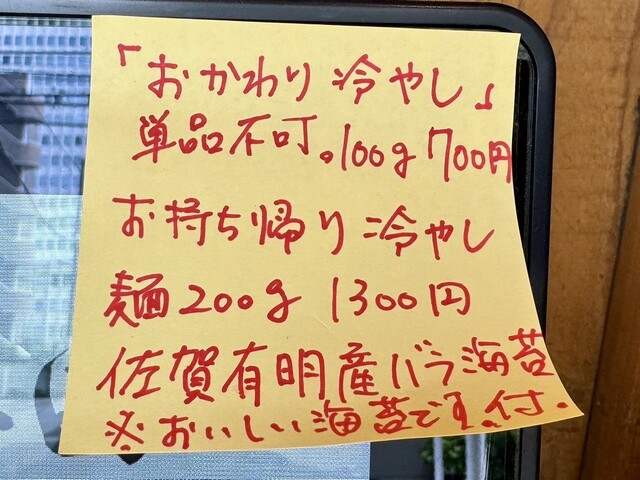 「おかわり冷やし」
単品不可。100g 700円
お持ち帰り冷やし
麺200g 1300円
佐賀有明産バラ海苔
※おいしい海苔です。付.